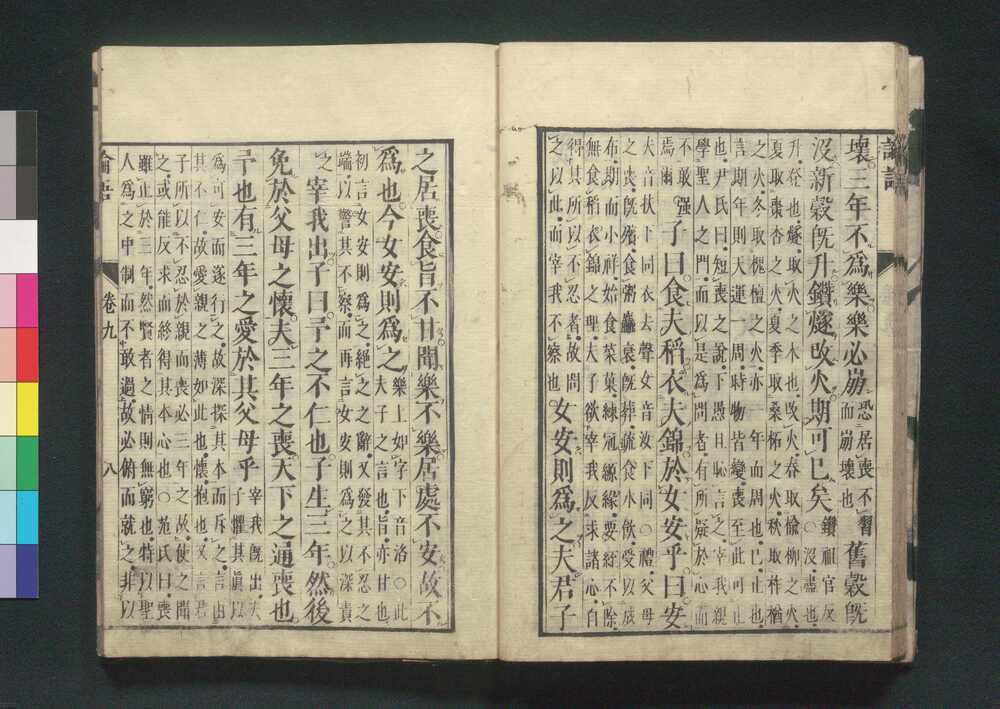 論語
壞三年不為樂樂必崩
恐居喪不習
而崩壞也
舊穀旣
沒新穀旣升鑽燧改火期可已矣
鑽祖官反
○沒盡也
升登也燧取火之木也改火春取榆柳之火
夏取棗杏之火夏季取桑柘之火秋取柞楢
之火冬取槐檀之火亦一年而周也已止也
言期年則天運一周時物皆變喪至此可止
也尹氏曰短喪之說下愚且恥言之宰我親
學聖人之門而以是為問者有所疑於心而
不敢强
焉爾
子曰食夫稻衣夫錦於女安乎曰安
夫音扶下同衣去聲女音汝下同○禮父母
之喪旣殯食粥麤衰旣葬疏食水飲受以成
布期而小祥始食菜果練冠縓緣要絰不除
無食稻衣錦之理夫子欲宰我反求諸心自
得其所以不忍者故問
之以此而宰我不察也
女安則為之夫君子
之居喪食旨不甘聞樂不樂居處不安故不
為也今女安則為之
樂上如字下音洛○此
夫子之言也旨亦甘也
初言女安則為之絕之之辭又發其不忍之
端以警其不察而再言女安則為之以深責
之
宰我出子曰予之不仁也子生三年然後
免於父母之懷夫三年之喪天下之通喪也
予也有三年之愛於其父母乎
宰我旣出夫
子懼其眞以
為可安而遂行之故深探其本而斥之言由
其不仁故愛親之薄如此也懷抱也又言君
子所以不忍於親而喪必三年之故使之聞
之或能反求而終得其本心也○范氏曰喪
雖止於三年然賢者之情則無窮也特以聖
人為之中制而不敢過故必俯而就之非以
論語
卷九
八